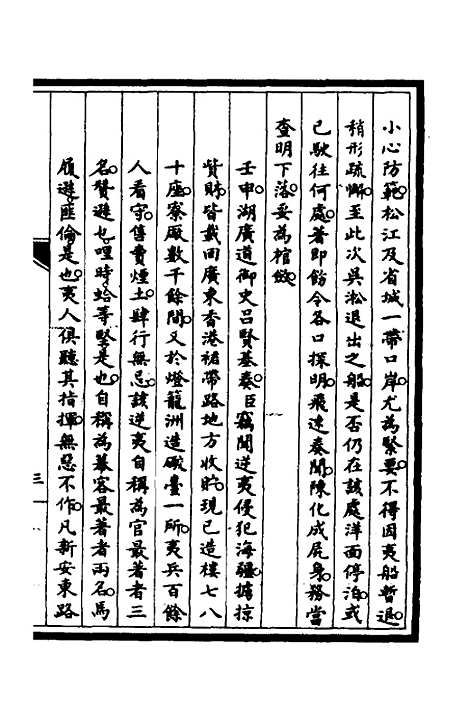 小心防範松江及省城一帶口岸尤為緊要不得因夷船暫退
稍形疏懈至此次吳淞退出之船是否仍在該處洋面停泊或
已駛往何處著即飭令各口探明飛速奏聞陳化成屍身務當
查明下落妥為棺殮
壬申湖廣道御史呂賢基奏臣竊聞逆夷侵犯海疆擄掠
貲財皆載回廣東香港裙帶路地方收貯現已造樓七八
十座寮廠數千餘間又於燈籠洲造礮臺一所夷兵百餘
人看守售賣煙土肆行無忌該逆夷自稱為官最著者三
名贊遜也哩時蛤等堅是也自稱為幕客最著者兩名馬
履遜匪倫是也夷人俱聽其指揮無惡不作凡新安東路
三